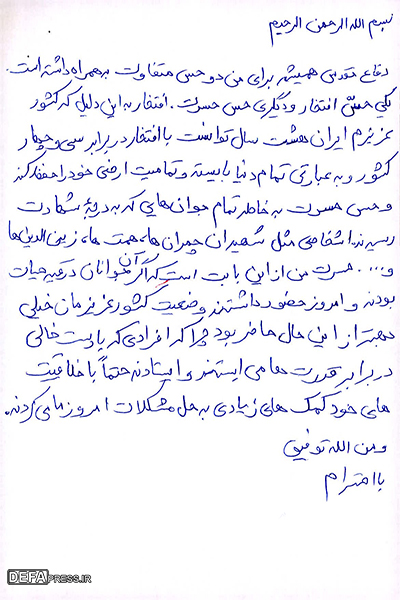 بسم الله الرحمن الرحیم
دفاع مقدس همیشه برای من دو حس متفاوت به همراه داشته است.
یکی حس افتخار و دیگری حس حسرت. افتخار به این دلیل که کشور
عزیزم ایران هشت سال توانست با افتخار در برابر سی و چهار
کشور و به عبارتی تمام دنیا بایسته و تمامیت ارضی خود را حفظ کند
و حس حسرت به خاطر تمام جوان‌هایی که به درجهٔ شهادت
رسیدند. اشخاصی مثل شهیدان چمران‌ها، همت‌ها، زین‌الدین‌ها
و.... حسرت من از این بابت است که اگر آن جوانان در قید حیات
بودند و امروز حضور داشتند وضعیت کشور عزیزمان خیلی
بهتر از این حال حاضر بود چرا که افرادی که با دست خالی
در برابر قدرت‌هامی ایستند و ایستادند حتماً با خلاقیت
های خود کمک های زیادی به حل مشکلات امروز مامی کردند.
و من الله توفیق
با احترام
DEFAPRESS.IR